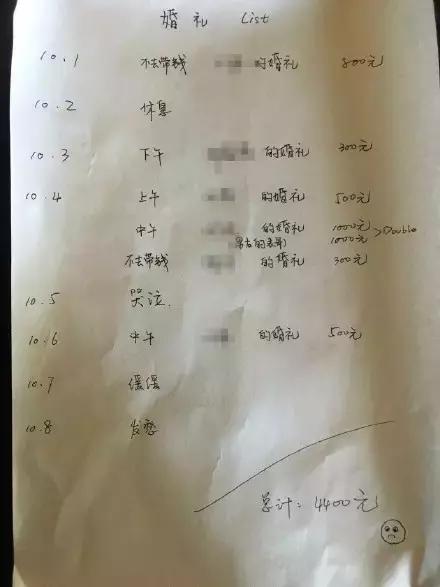 婚礼 List
10.1 不去带钱 的婚礼 800元
10.2 休息
10.3 下午 的婚礼 300元
10.4 上午 的婚礼 500元
中午 的婚礼 1000元
男友的表弟 1000元 >Double
不去带钱 的婚礼 300元
10.5 哭泣.
10.6 中午 的婚礼 500元
10.7 缓缓
10.8 发愁
总计: 4400元